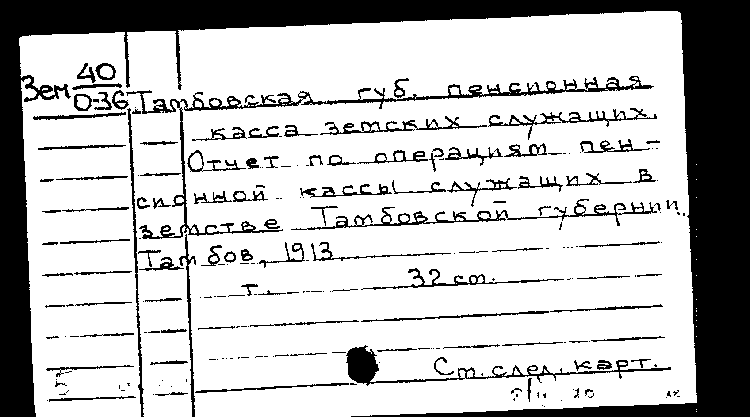 Зем 40
0-36 Тамбовская губ. пенсионная
касса земских служащих.
Отчет по операциям пен-
сионной кассы служащих в
земстве Тамбовской губернии.
Тамбов, 1913.
т. 32 см.
См. след. карт.
5